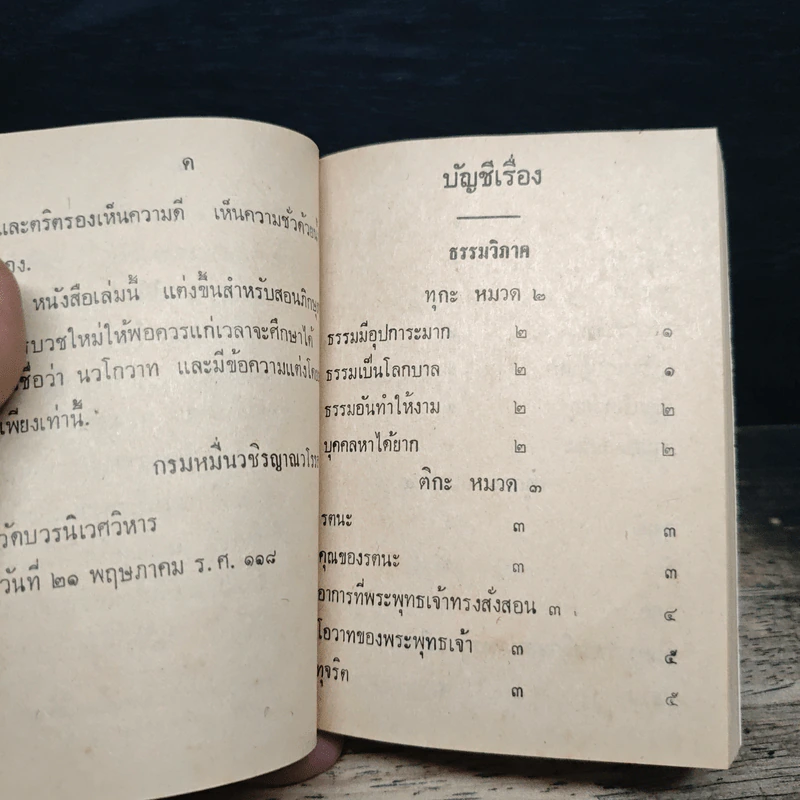 ค
และตริตรองเห็นความดี เห็นความชั่วด้วยตน
เอง.
หนังสือเล่มนี้ แต่งขึ้นสำหรับสอนภิกษุ
บวชใหม่ให้พอควรแก่เวลาจะศึกษาได้
ชื่อว่า นวโกวาท และมีข้อความแต่งโดย
เพียงเท่านี้.
กรมหมื่นวชิรญาณวโรรส
วัดบวรนิเวศวิหาร
วันที่ ๒๑ พฤษภาคม ร. ศ. ๑๑๘
บัญชีเรื่อง
ธรรมวิภาค
ทุกะ หมวด ๒
ธรรมมีอุปการะมาก ๒ ๑
ธรรมเป็นโลกบาล ๒ ๑
ธรรมอันทำให้งาม ๒ ๒
บุคคลหาได้ยาก ๒ ๒
ติกะ หมวด ๓
รตนะ ๓ ๓
คุณของรตนะ ๓ ๓
อาการที่พระพุทธเจ้าทรงสั่งสอน ๓ ๔
โอวาทของพระพุทธเจ้า ๓ ๕
ทุจริต ๓ ๕